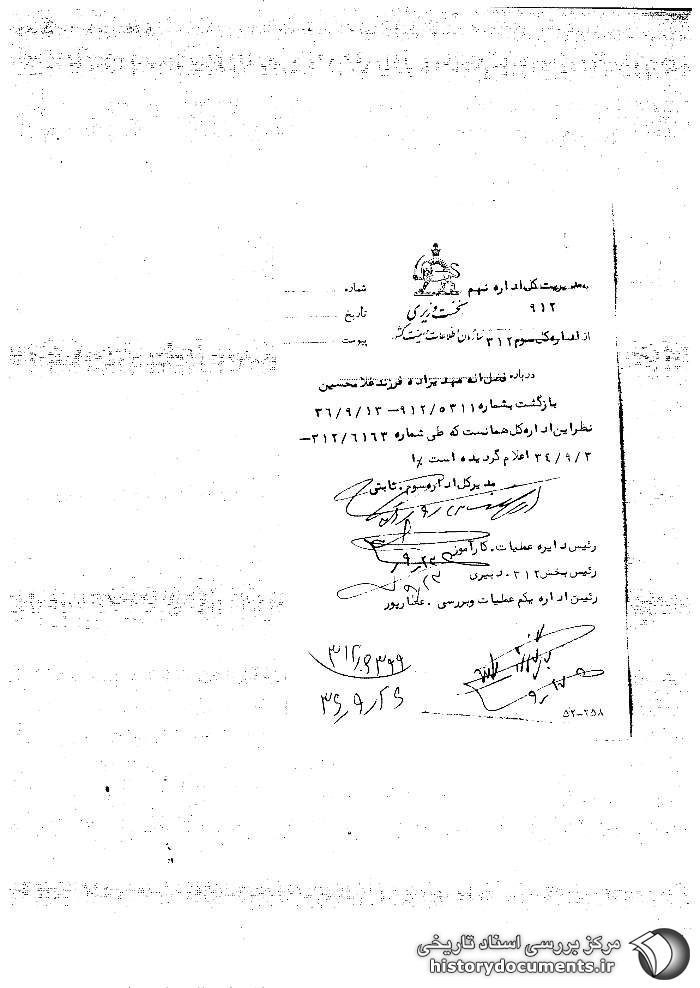 به مدیریت کل اداره نهم
۹۱۲
نخست وزیری
از اداره کل سوم ۳۱۲ سازمان اطلاعات و امنیت کشور
شماره
تاریخ
پیوست
درباره فضل اله مهدیزاده فرزند غلامحسین
بازگشت بشماره ۹۱۲/۵۳۱۱ – ۳۶/۹/۱۳
نظر این اداره کل همانست که طی شماره ۳۱۲/۶۱۶۳ –
۳۴/۹/۳ اعلام گردیده است
مدیرکل اداره سوم . ثابتی
رئیس دایره عملیات . کارآموز
رئیس بخش ۳۱۲ . دبیری
رئیس اداره یکم عملیات و بررسی . عطارپور
۵۲–۲۵۸
مرکز بررسی اسناد تاریخی
historydocuments.ir